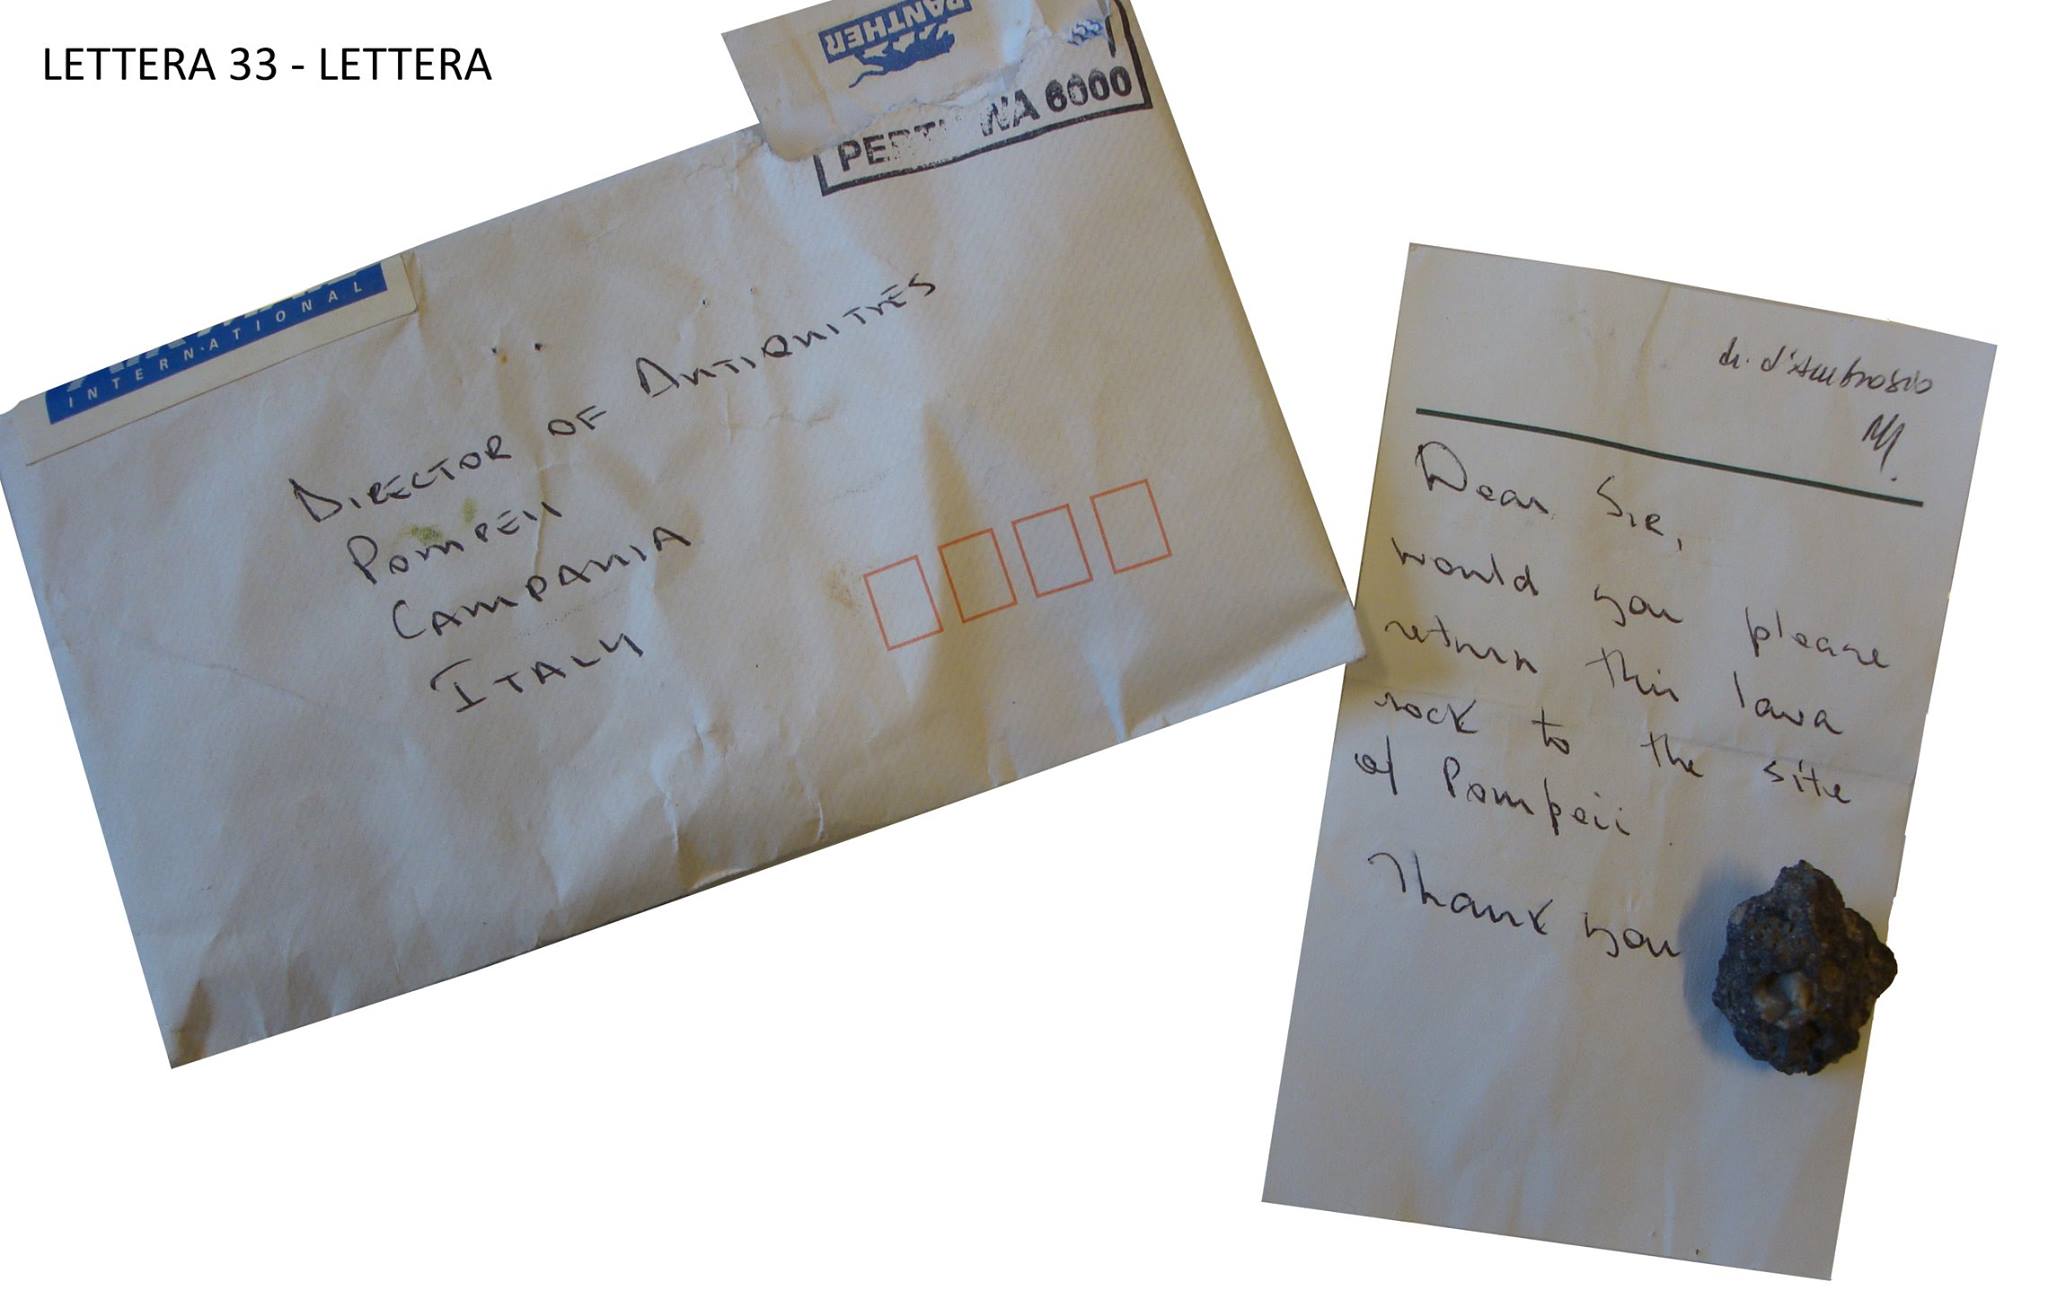 LETTERA 33 - LETTERA
PANTHER
WA 6000
INTERNATIONAL
DIRECTOR OF ANTIQUITIES
POMPEII
CAMPANIA
ITALY
dr. d'Ambrosio
Dear Sir,
would you please
return this lava
rock to the site
of Pompeii
Thank you